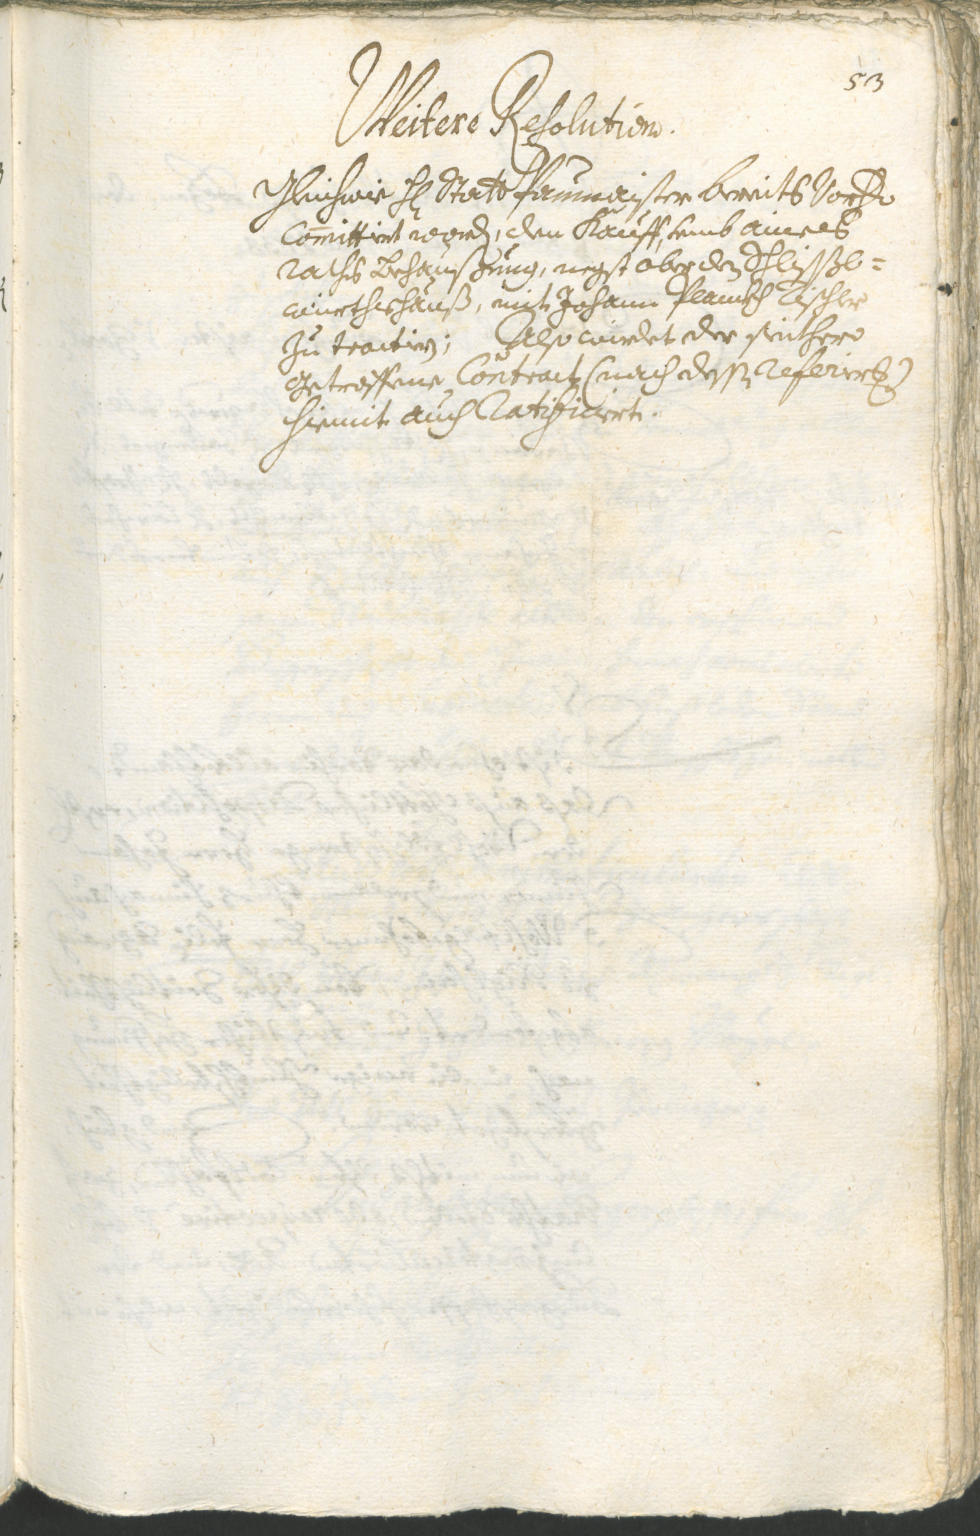 53
Weitere Resolution.
Gleichwie H Statt Paumaister bereits
Committiert worden, den Kauff, umb aines
Raths Behaußung, negst ober den Schlissl=
würthshauß, mit Johann Tischler
zu tractirn; Also würdet der seithero
getroffene Contract (nach dessen Referirn)
hiemit auch Ratificiert.